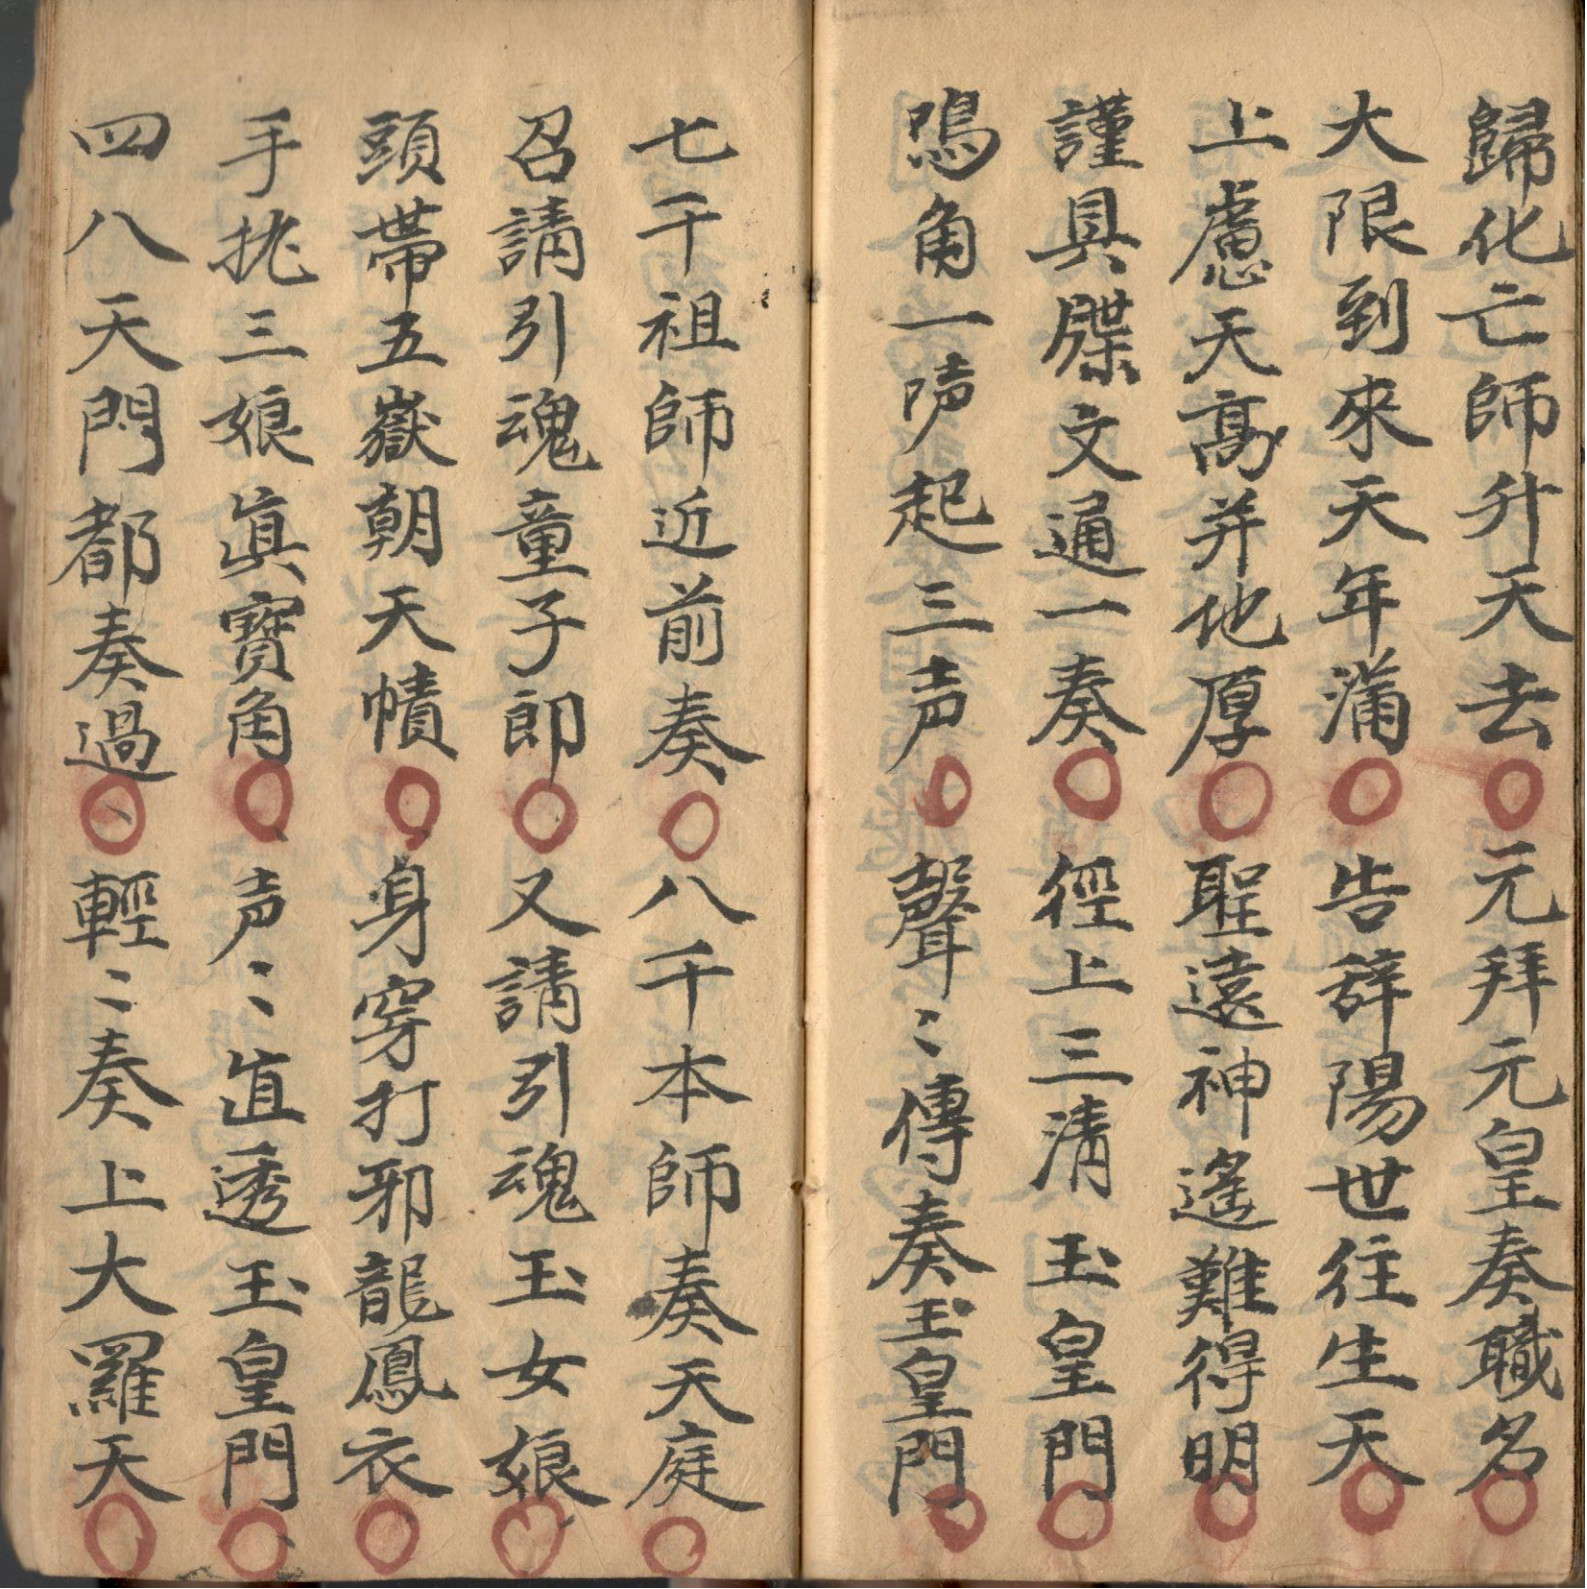 歸化亡師升天去○元拜元皇奏職名○
大限到來天年滿○告辞陽世往生天○
上慮天高并地厚○聖遠神遙難得明○
謹具牒文通一奏○徑上三清玉皇門○
鳴角一声起三声○聲〻傳奏玉皇門○
七千祖師近前奏○八千本師奏天庭○
召請引魂童子郎○又請引魂玉女娘○
頭帶五嶽朝天幘○身穿打邪龍鳳衣○
手挑三娘真寶角○声〻直透玉皇門○
四八天門都奏過○輕〻奏上大羅天○